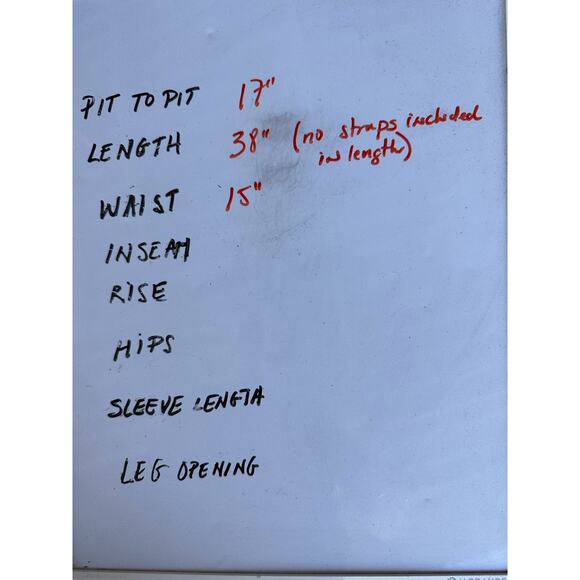 PIT TO PIT 17"
LENGTH 38" (no straps included
in length)
WAIST 15"
INSEAM
RISE
HIPS
SLEEVE LENGTH
LEG OPENING